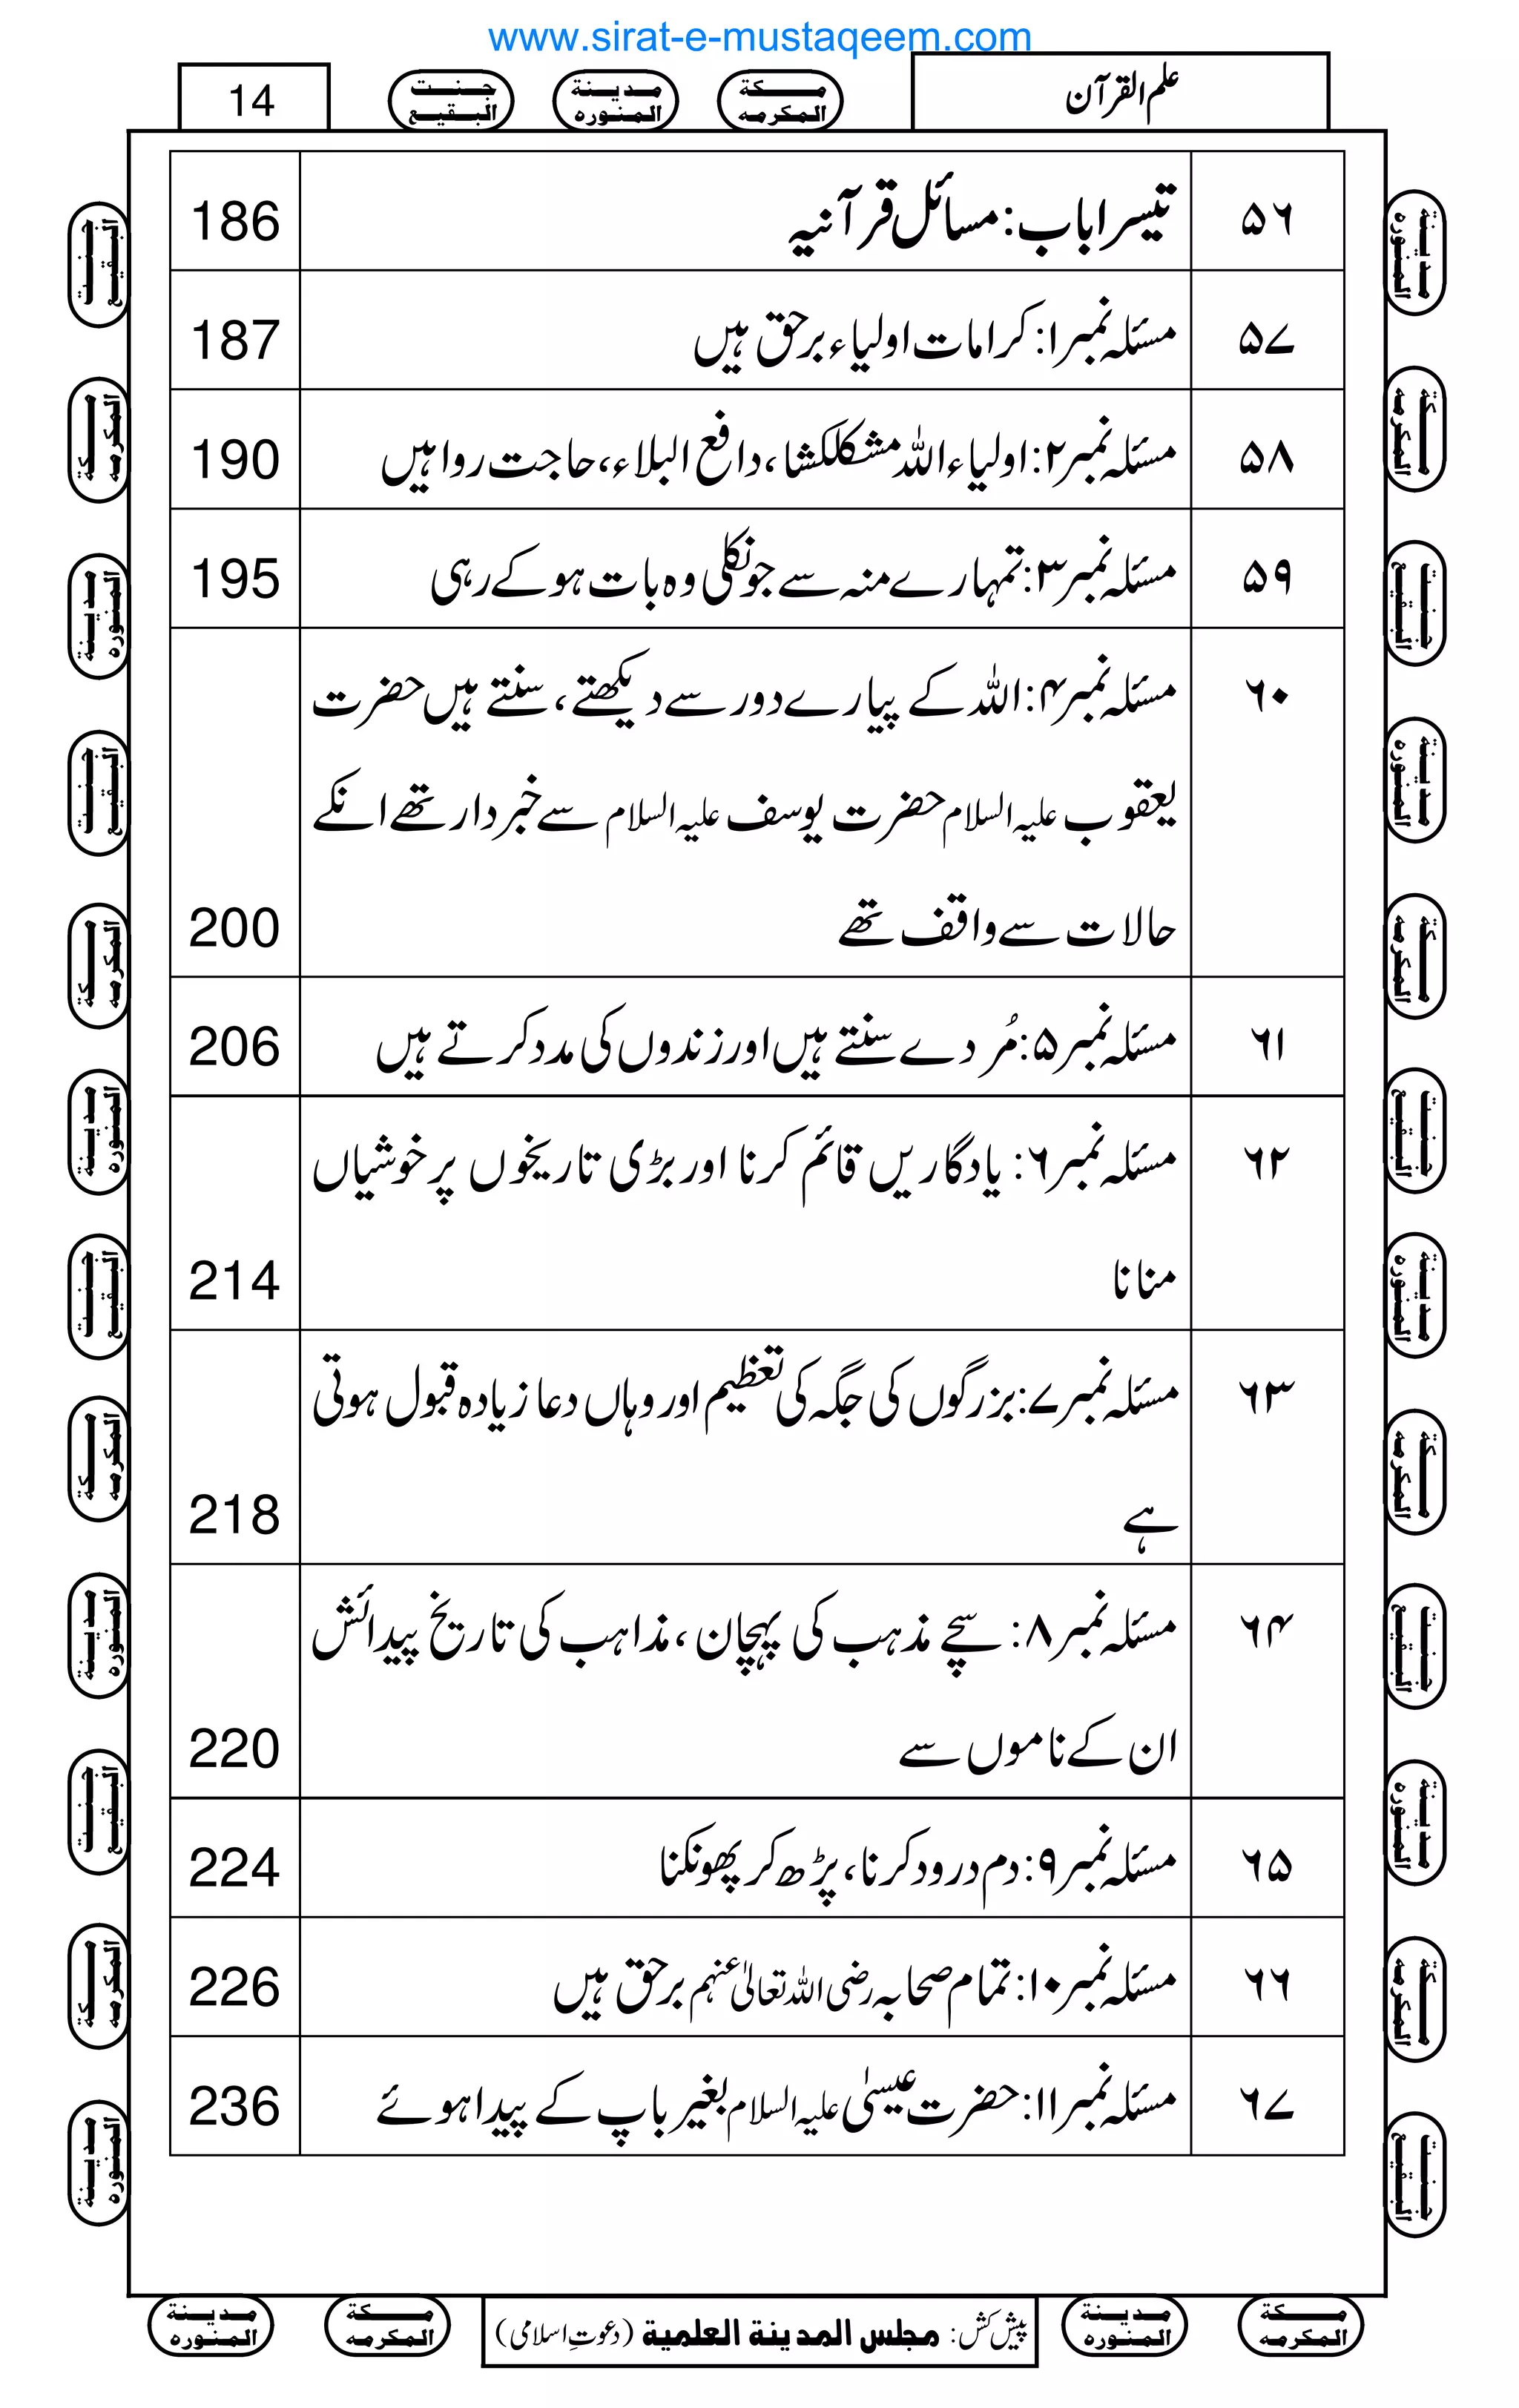 www.sirat-e-mustaqeem.com
علم القرآن
مكة المكرمه
مدينة المنوره
جنت البقيع
14
۵۶ تیسرا باب: مسائل قرآنیہ 186
۵۷ مسئلہ نمبر۱: کرامات اولیاء برحق ہیں 187
۵۸ مسئلہ نمبر۲: اولیاء اللہ مشکلکشا، دافع البلاء، حاجت روا ہیں 190
۵۹ مسئلہ نمبر۳: تمہارے منہ سے جو نکلی وہ بات ہو کے رہی 195
۶۰ مسئلہ نمبر۴: اللہ کے پیارے دور سے دیکھتے، سنتے ہیں حضرت
یعقوب علیہ السلام حضرت یوسف علیہ السلام سے خبردار تھے انکے
حالات سے واقف تھے 200
۶۱ مسئلہ نمبر۵: مُردے سنتے ہیں اور زندوں کی مدد کرتے ہیں 206
۶۲ مسئلہ نمبر۶: یادگاریں قائم کرنا اور بڑی تاریخوں پر خوشیاں
منانا 214
۶۳ مسئلہ نمبر۷: بزرگوں کی جگہ کی تعظیم اور وہاں دعا زیادہ قبول ہوتی
ہے 218
۶۴ مسئلہ نمبر۸: سچے مذہب کی پہچان، مذاہب کی تاریخ پیدائش
ان کے ناموں سے 220
۶۵ مسئلہ نمبر۹: دم درود کرنا، پڑھ کر پھونکنا 224
۶۶ مسئلہ نمبر۱۰: تمام صحابہ رضی اللہ تعالیٰ عنہم برحق ہیں 226
۶۷ مسئلہ نمبر۱۱: حضرت عیسیٰ علیہ السلام بغیر باپ کے پیدا ہوئے 236
مكة المكرمه
مدينة المنوره
پیش کش: مجلس المدينة العلمية (دعوتِ اسلامی)
مكة المكرمه
مدينة المنوره